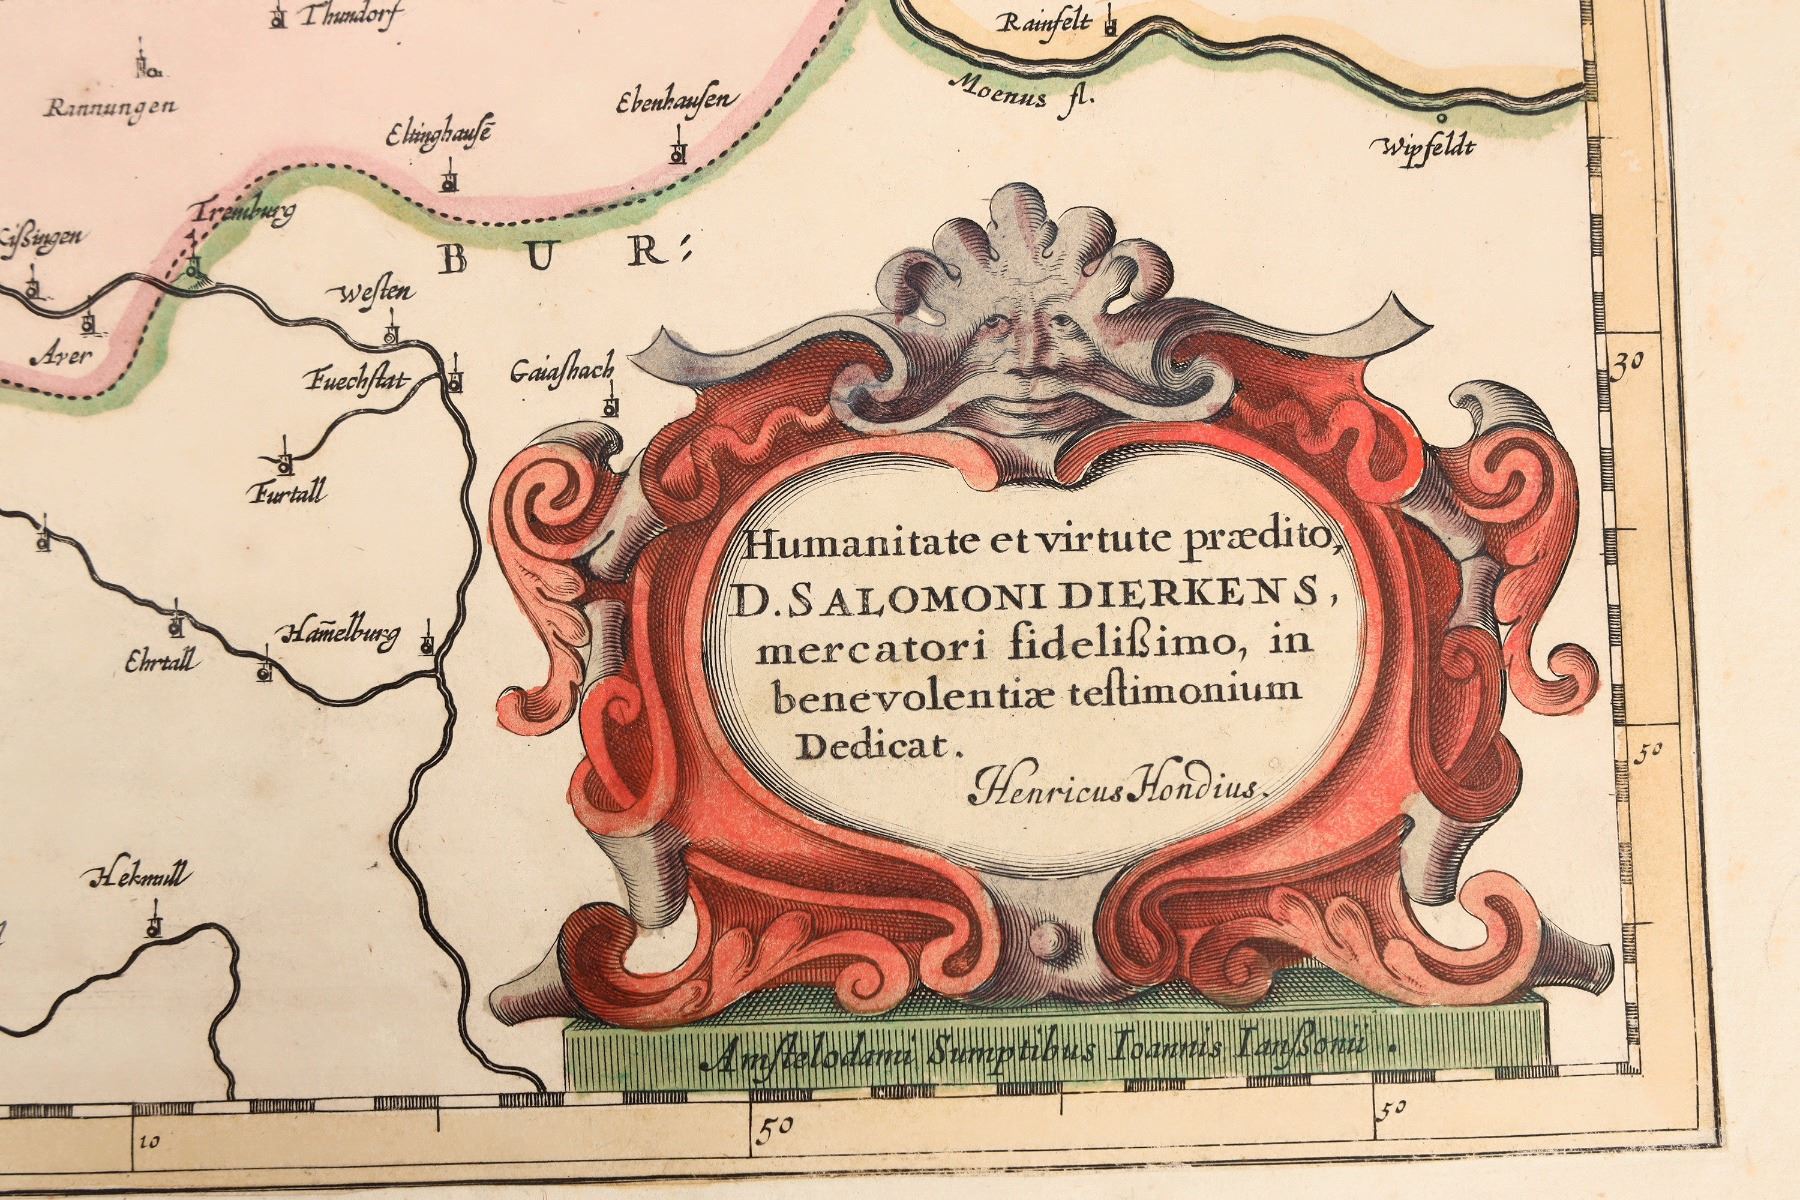 Thundorf
Rainfelt
Rannungen
Ebenhausen
Moenus fl.
Eltinghausē
Wipfeldt
Tremburg
Kißingen
B U R:
Westen
Arer
30
Fuechstat
Gaiashach
Furtall
Humanitate et virtute prædito,
D. SALOMONI DIERKENS,
mercatori fidelißimo, in
benevolentiæ testimonium
Dedicat.
Henricus Hondius.
Ham̄elburg
Ehrtall
50
Hekmull
Amstelodami Sumptibus Ioannis Ianßonii.
10
50
50